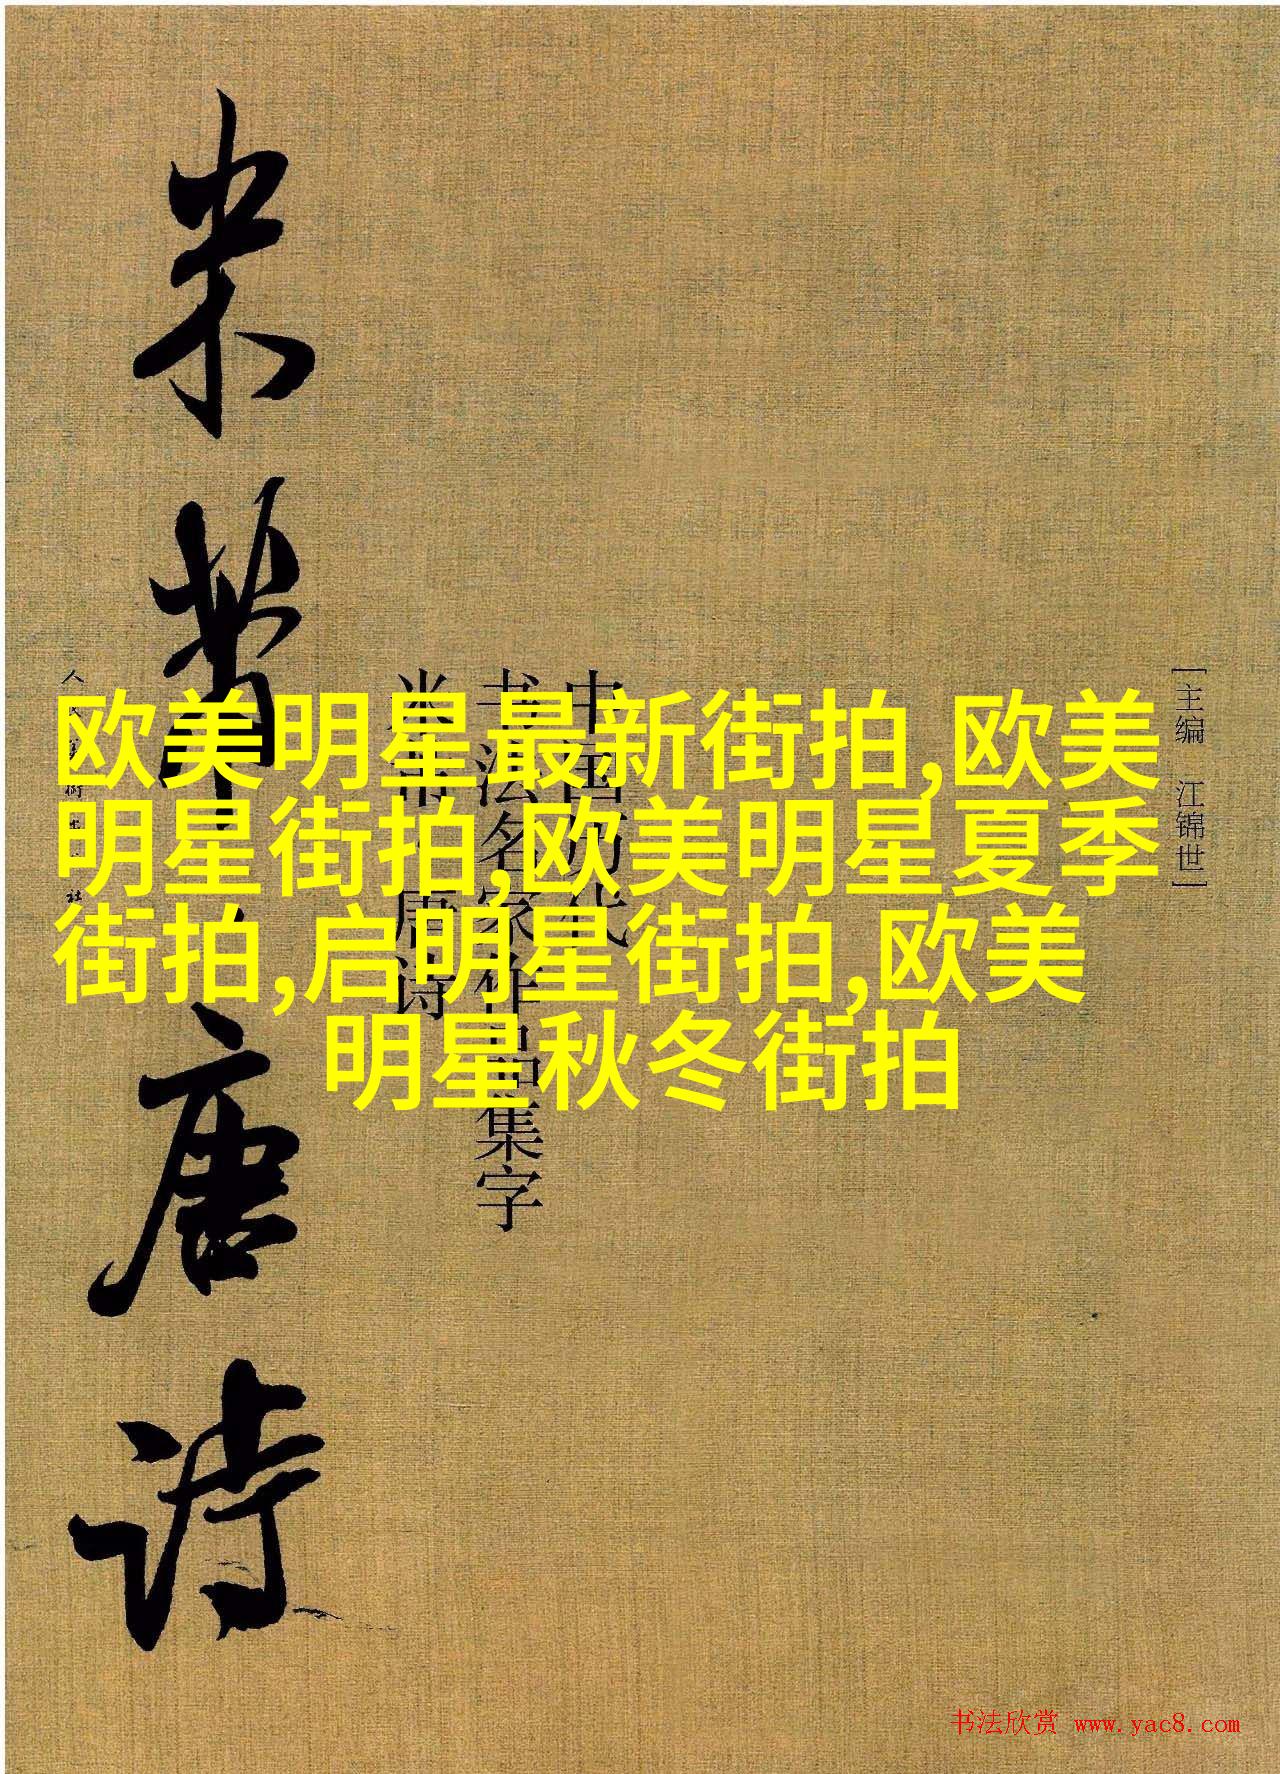 米芾·唐诗
欧美明星最新街拍,欧美
明星街拍,欧美明星夏季
街拍,启明星街拍,欧美
明星秋冬街拍
[主编 江锦世]
中国历代
书法名家作品集字
米芾·唐诗
社
书法欣赏 www.yac8.com